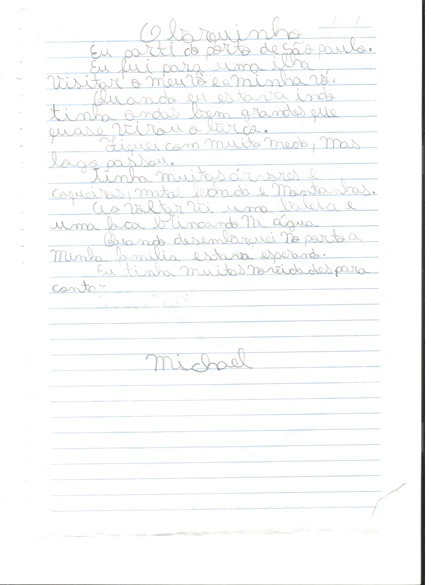 O barquinho
Eu parti do porto de São paulo.
Eu fui para uma ilha
Visitar o meu vô e a minha vó.
Quando eu estava indo
tinha ondas bem grandes que
quase virou o barco.
Fiquei com muito medo, mas
logo passou.
Tinha muitas árvores e
coqueiros, mata fechada e Montanhas.
Ao voltar vi uma baleia e
uma foca brincando na água
Quando desembarquei no porto a
Minha família estava esperando.
Eu tinha muitas novidades para
conta
Michael